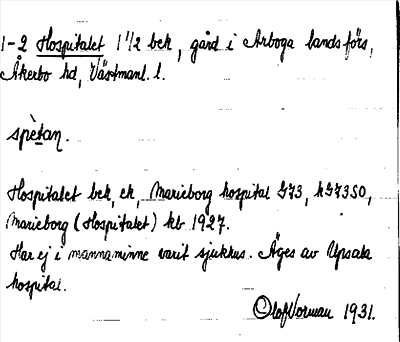 1-2 Hospitalet 1 1/2 bek, gård i Arboga landsförs,
Åkerbo hd, Västmanl. l.
spètan.
Hospitalet bek, ek, Marieborg hospital G73, kG73SO,
Marieborg (Hospitalet) kb 1927.
Har ej i mannaminne varit sjukhus. Äges av Upsala
hospital.
Olof Norman 1931.